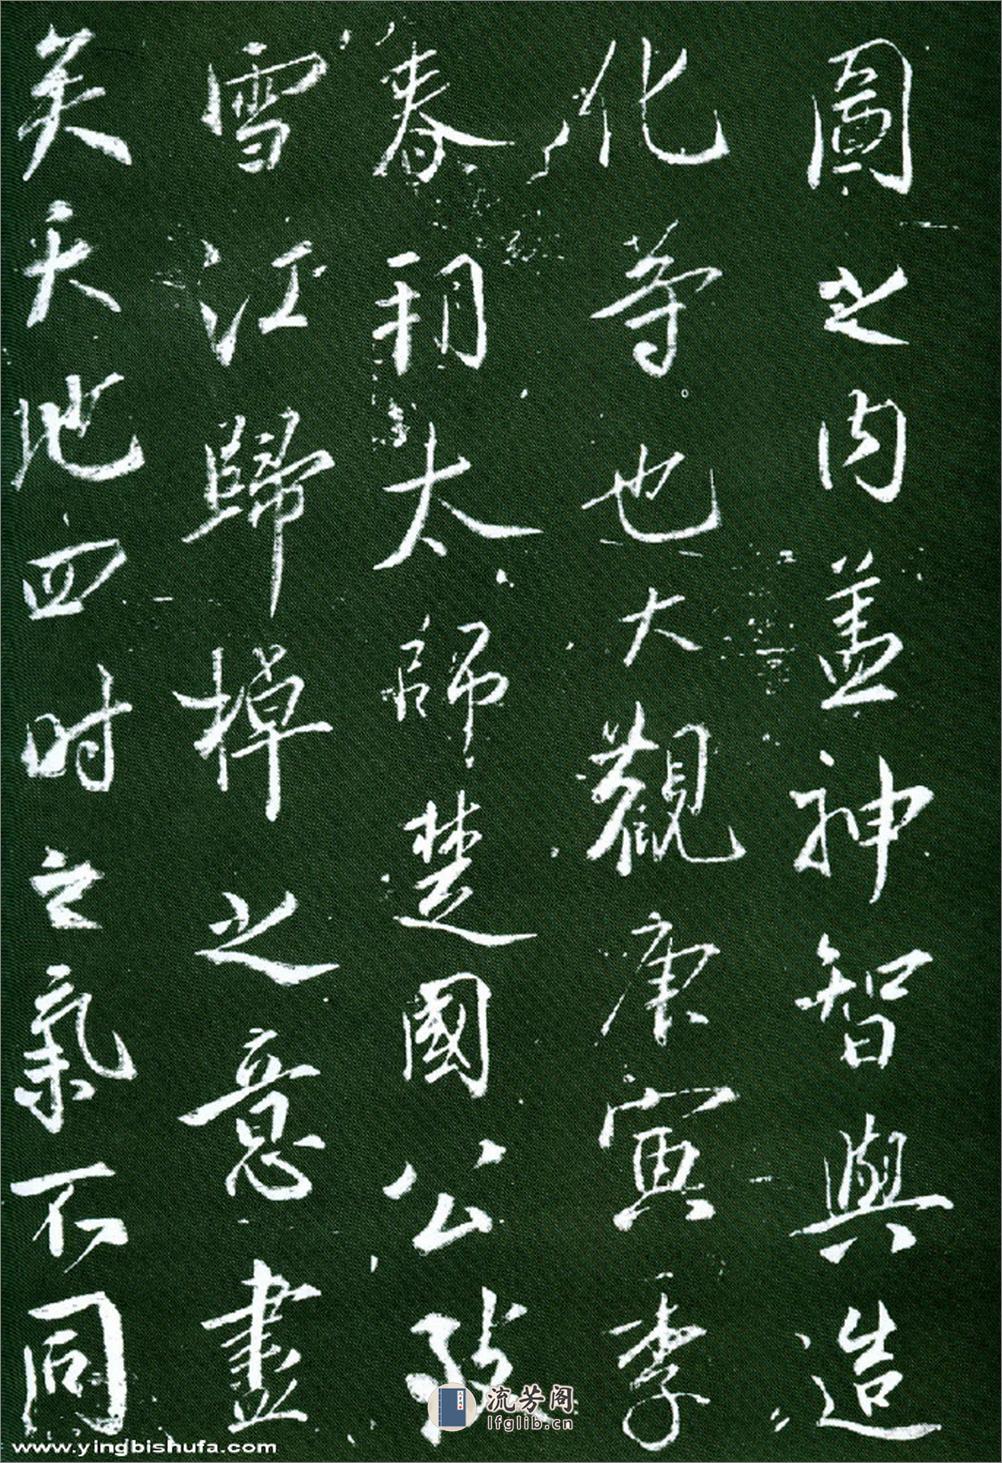 圖之内盖神智與造
化等也大觀庚寅季
春朔太師楚國公致
雪江歸棹之意盡
矣天地四时之氣不同
流芳阁
lfglib.cn
www.yingbishufa.com